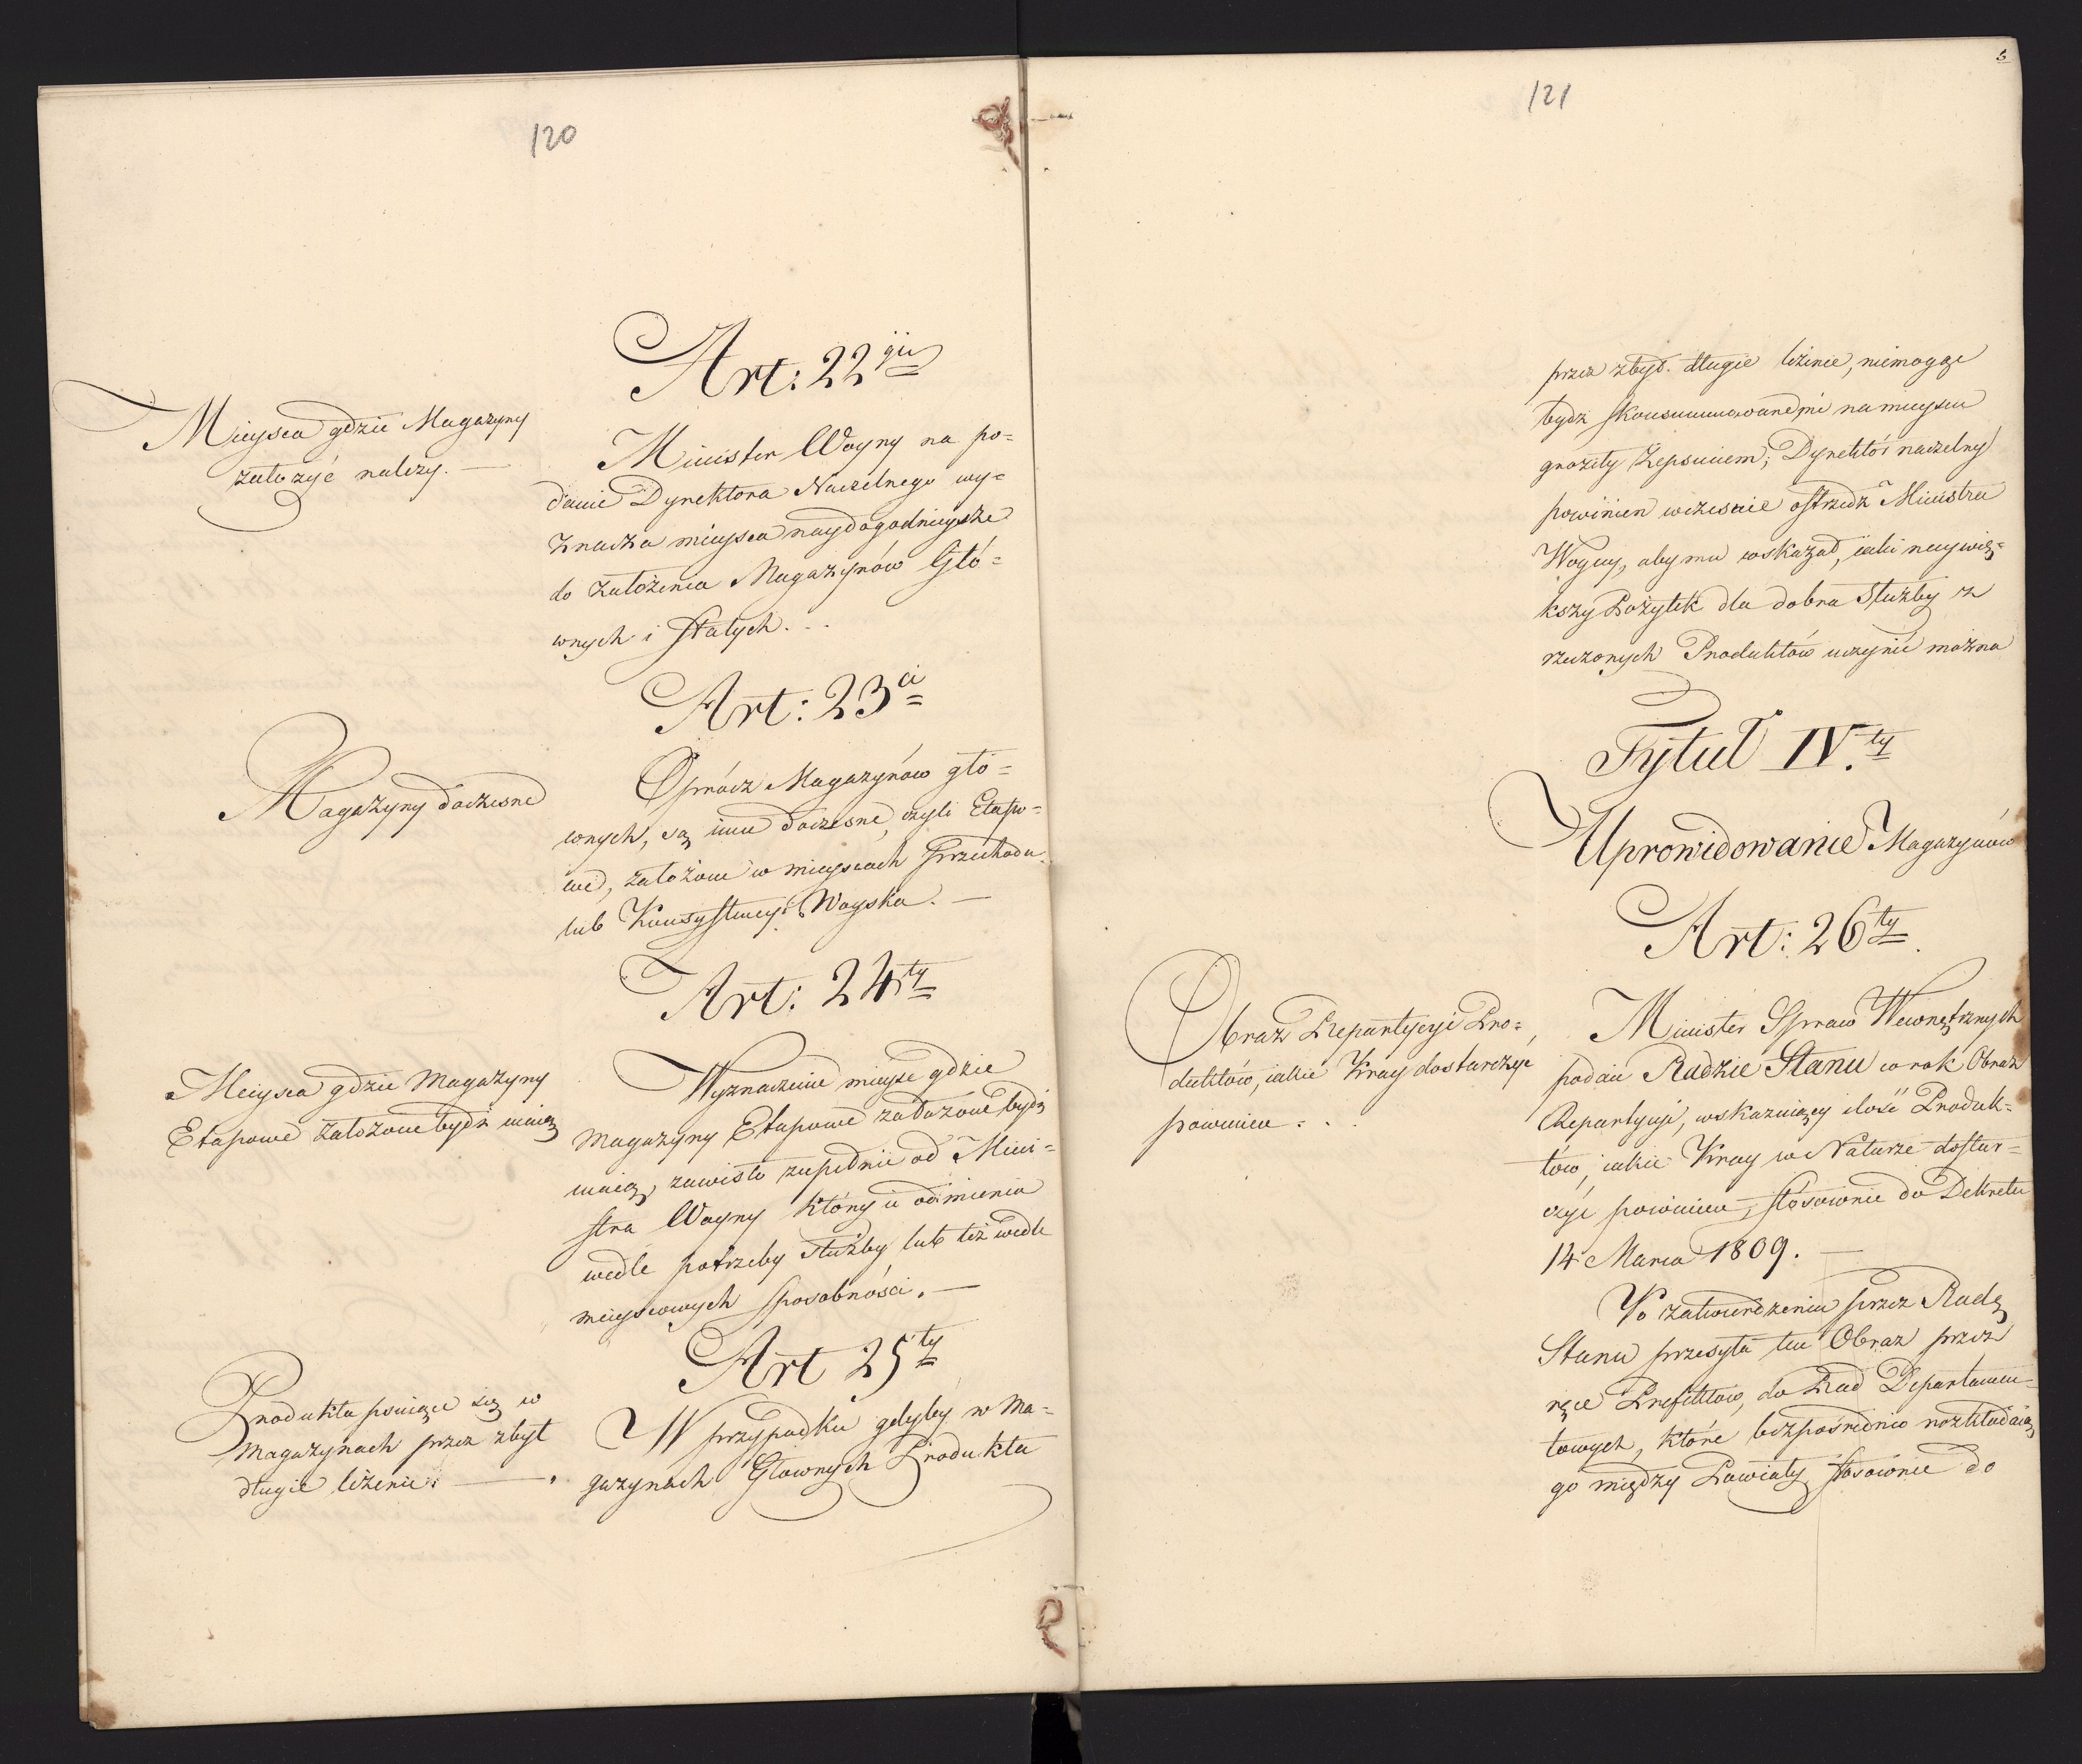 120
Art: 22gi
Mieysca gdzie Magazyny
założyć należy. —
Minister Woyny na po=
danie Dyrektora Naczelnego wy=
znacza mieysca naydogodnieysze
do założenia Magazynów Głó=
wnych i stałych. . .
Art: 23ci
Magazyny doczesne
Oprócz Magazynów głó=
wnych, są inne doczesne, czyli Etapo=
we, założone w mieyscach przechodu
lub Konsystencyi Woyska. —
Art: 24ty
Mieysca gdzie Magazyny
Etapowe założone bydź maią
Wyznaczenie mieysc gdzie
Magazyny Etapowe założone bydź
maią, zawisło zupełnie od Mini=
stra Woyny który ie odmienia
wedle potrzeby służby lub też wedle
mieyscowych sposobności. —
Art 25ty
Produkta psuiące się w
Magazynach przez zbyt
długie leżenie. —
W przypadku gdyby w Ma=
gazynach Głownych Produkta
5
121
przez zbyt długie leżenie, niemogąc
bydź skonsummowanemi na mieyscu
groziły zepsuciem; Dyrektor naczelny
powinien wcześnie ostrzedz Ministra
Woyny, aby mu wskazał, iaki naywię=
kszy Pożytek dla dobra Służby z
rzeczonych Produktów uczynić można
Tytuł IV.ty
Uprowidowanie Magazynów
Art: 26ty.
Obraz Repartycyi Pro=
duktów, iakie Kray dostarczyć
powinien. . .
Minister Spraw Wewnętrznych
podaie Radzie Stanu co rok Obraz
Repartycyi, wskazuiący ilość Produk=
tów, iakie Kray w Naturze dostar=
czyć powinien, stósownie do Dekretu
14 Marca 1809. —
Po zatwierdzeniu przez Radę
Stanu przesyła ten Obraz przez
ręce Prefektów, do Rad Departamen=
towych, które bezpośrednio rozkładaią
go między Powiaty stosownie do